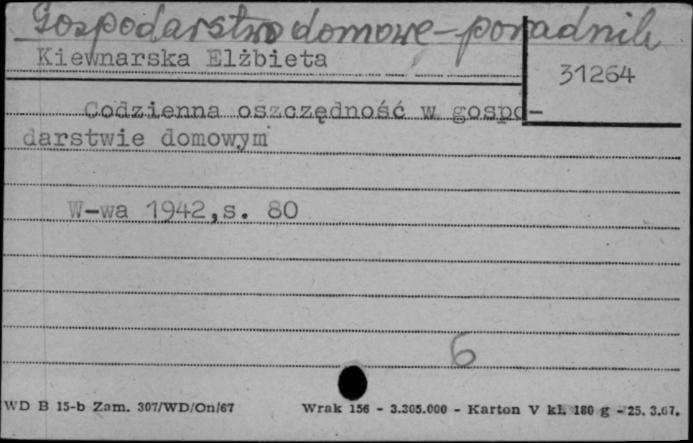 Gospodarstwo domowe - poradnik
Kiewnarska Elżbieta
31264
Codzienna oszczędność w gospo-
darstwie domowym
W-wa 1942,s. 80
6
WD B 15-b Zam. 307/WD/On/67
Wrak 156 - 3.305.000 - Karton V kl. 180 g - 25. 3.67.